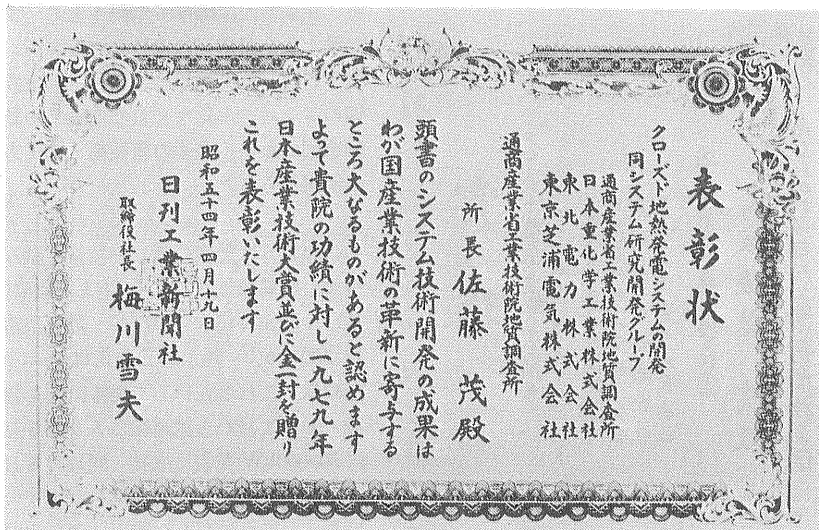 表彰状
クローズド地熱発電システムの開発
同システム研究開発グループ
通商産業省工業技術院地質調査所
日本重化学工業株式会社
東北電力株式会社
東京芝浦電気株式会社
通商産業省工業技術院地質調査所
所長佐藤茂殿
頭書のシステム技術開発の成果は
わが国産業技術の革新に寄与する
ところ大なるものがあると認めます
よって貴院の功績に対し一九七九年
日本産業技術大賞並びに金一封を贈り
これを表彰いたします
昭和五十四年四月十九日
日刊工業新聞社
取締役社長 梅川雪夫